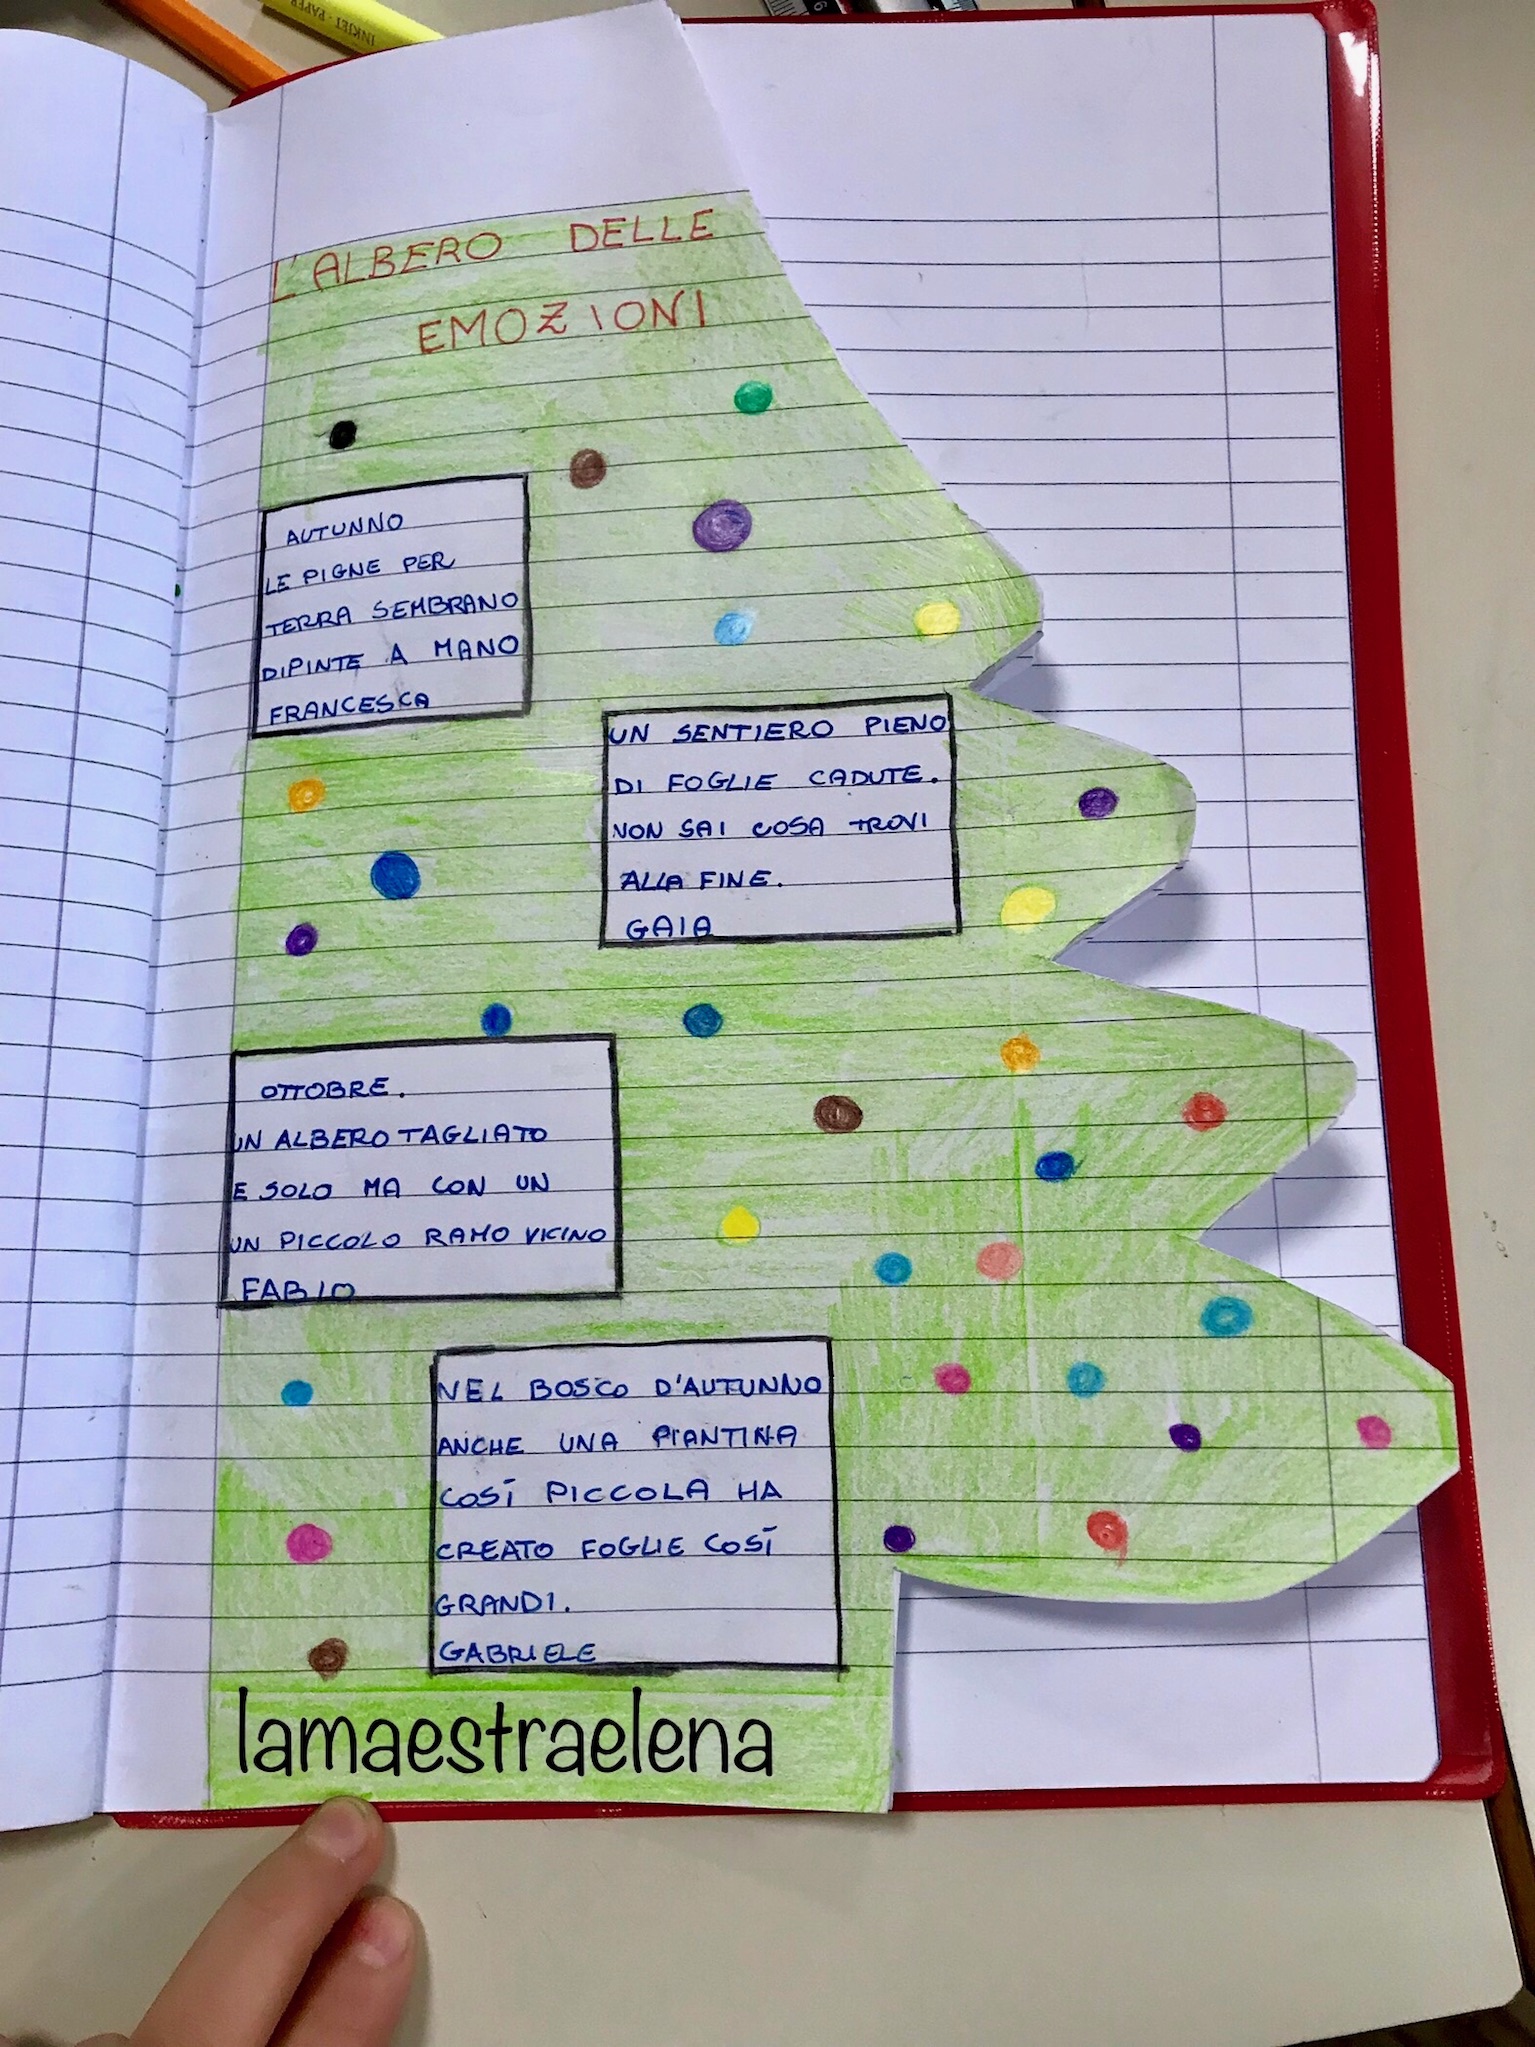 INKJET - PAPER
L'ALBERO DELLE
EMOZIONI
AUTUNNO
LE PIGNE PER
TERRA SEMBRANO
DIPINTE A MANO
FRANCESCA
UN SENTIERO PIENO
DI FOGLIE CADUTE.
NON SAI COSA TROVI
ALLA FINE.
GAIA
OTTOBRE.
UN ALBERO TAGLIATO
E SOLO MA CON UN
UN PICCOLO RAMO VICINO
FABIO
NEL BOSCO D'AUTUNNO
ANCHE UNA PIANTINA
COSÍ PICCOLA HA
CREATO FOGLIE COSÍ
GRANDI.
GABRIELE
lamaestraelena